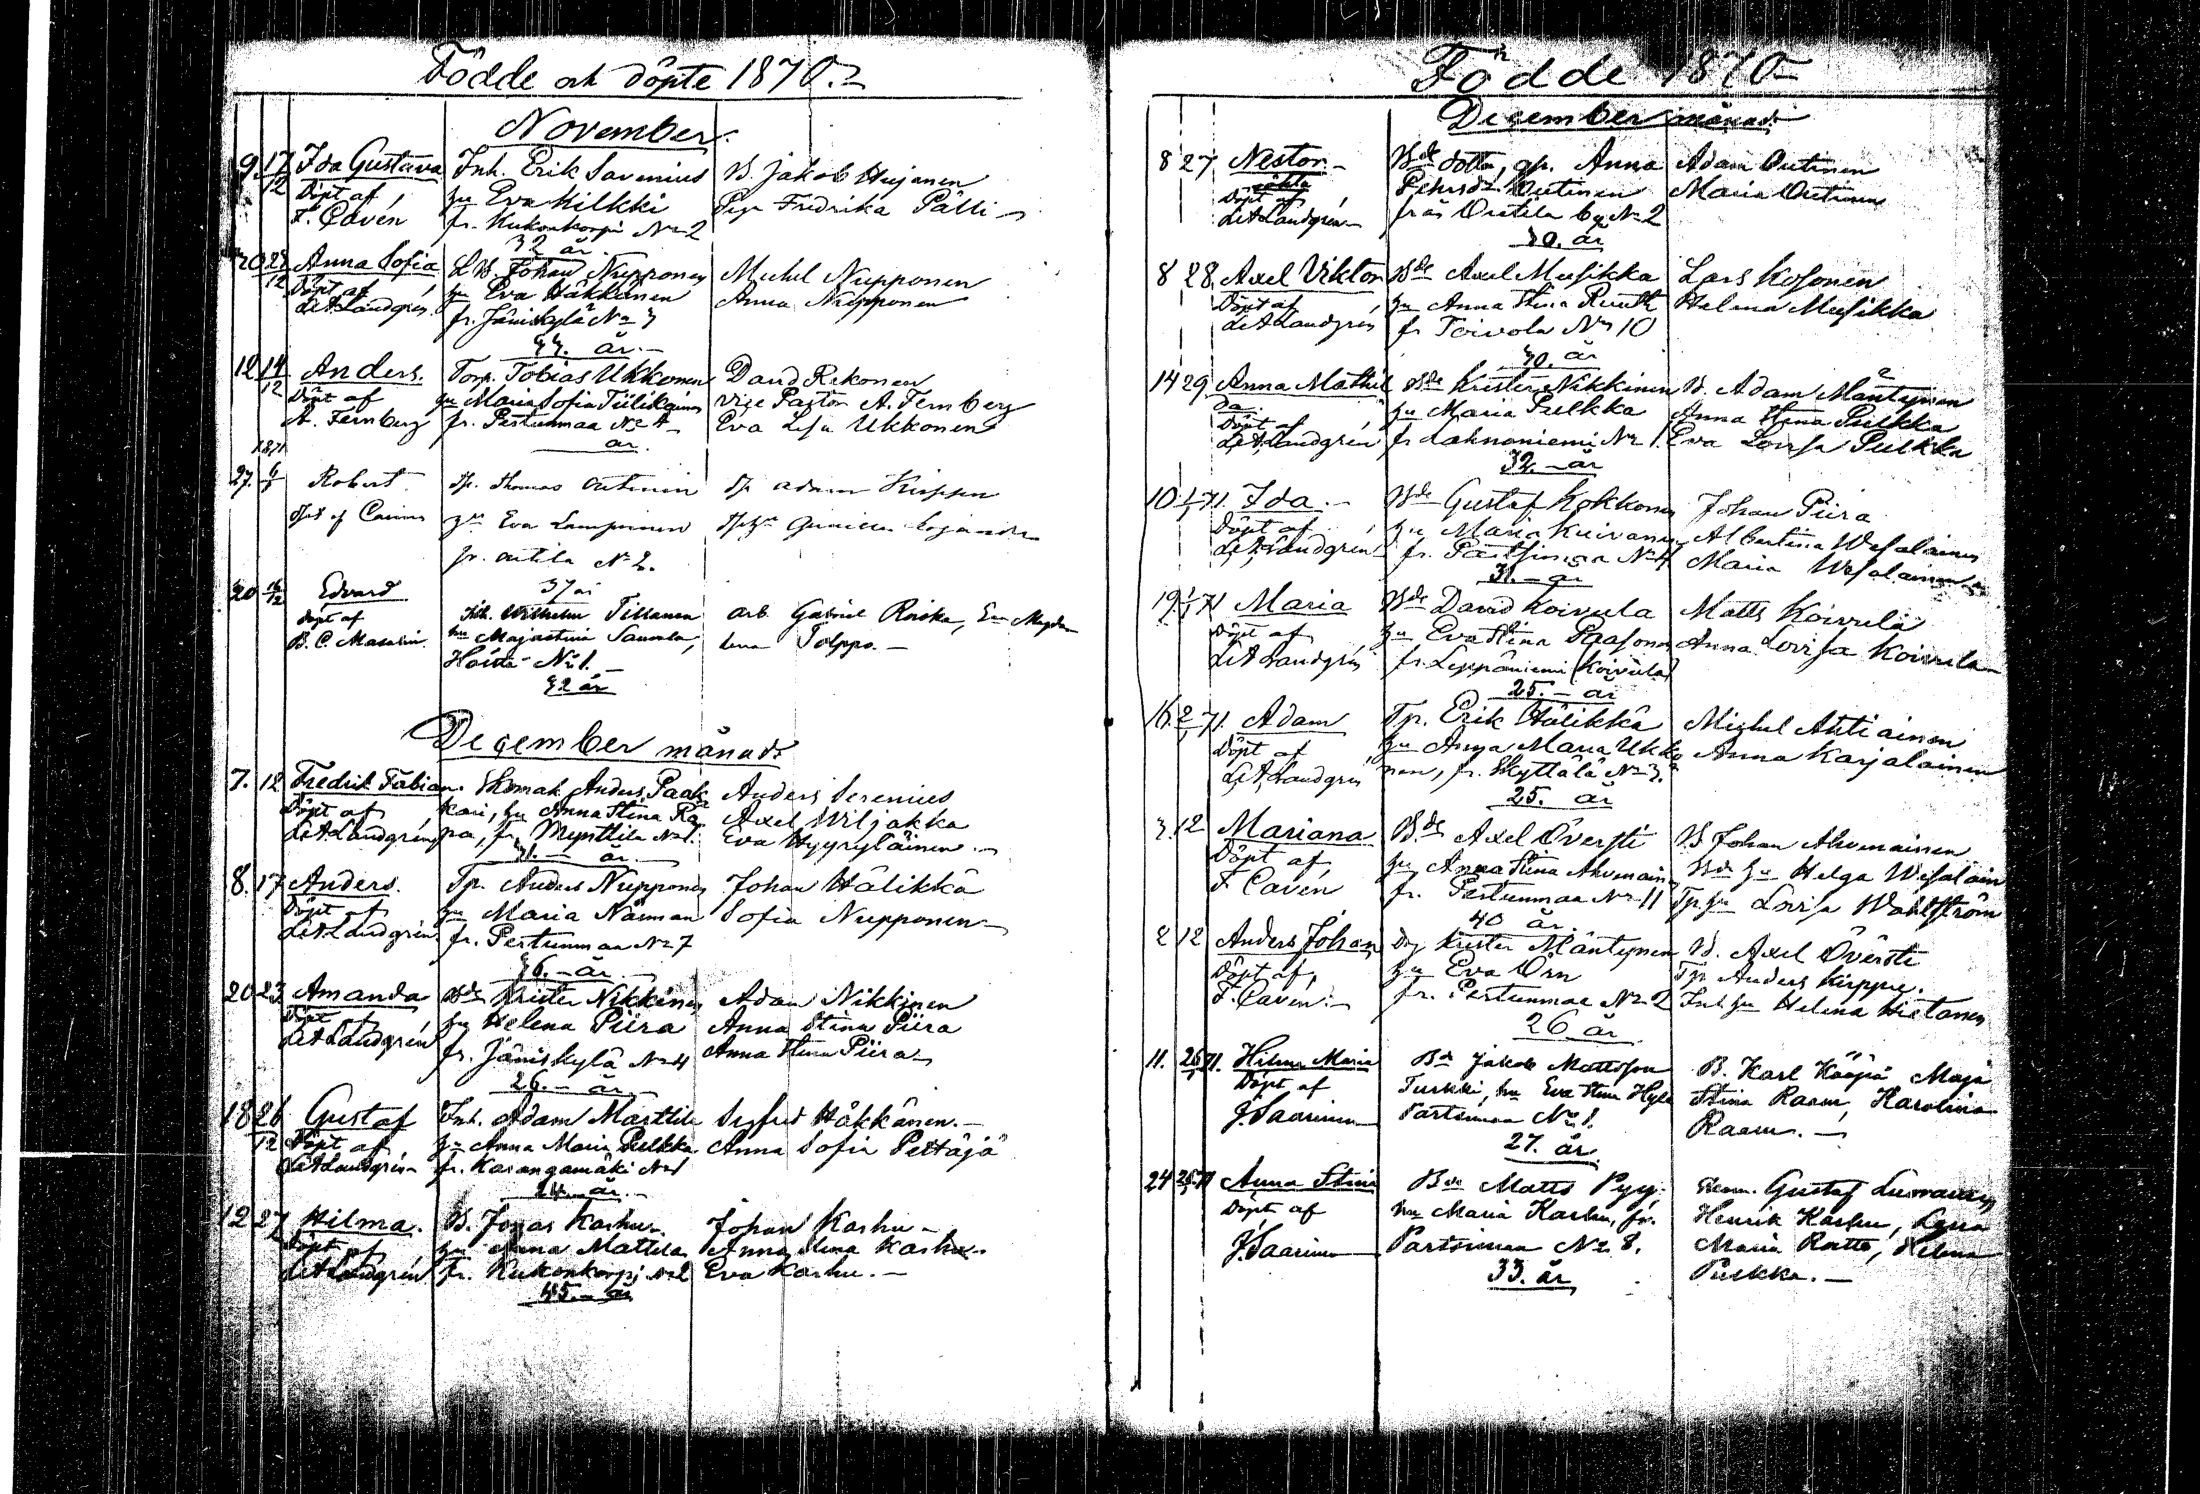 Födde och döpte 1870.
November.
9 17/12 Ida Gustava Inh. Erik Savenius B. Jakob Hujanen
Döpt af hu Eva Kilkki Pig. Fredrika Pälli
F. Cavén fr. Kukonkorpi No 2
32 år
20 27/12 Anna Sofia L B Johan Nupponen Michel Nupponen
Döpt af hu Eva Häkkänen Anna Nupponen
L A Landgrén fr. Jäniskylä No 3
44. år.
12 14/12 Anders. Torp. Tobias Ukkonen David Rekonen
Döpt af hu Maria Sofia Tiilikainen Vice Pastor A. Fernberg
A. Fernberg fr. Pertunmaa No 4 Eva Lisa Ukkonen
år.
1871
27. 6/1 Robert Tp. Thomas Outinen Tp Adam Kirppu
Döpt af Cavén hu Eva Lampinen
fr. Outila No 2.
37 år
20 16/12 Edvard Inh. Wilhelm Tillanen Arb. Gabriel Roiska, Eva Magda
Döpt af hu Majastina Saurela, lena Tolppa.
B. C. Masalin No 1.
42 år
December månad.
7. 12 Fredrik Fabian. Skomak. Anders Paak Anders Serenius
Döpt af kari, hu Anna Stina Rä Axel Wiljakka
L A Landgrén pa, fr. Mynttilä No 1. Eva Hyyryläinen.
41. år.
8. 17 Anders. Tp. Anders Nupponen Johan Hälikkä
Döpt af hu Maria Närman Sofia Nupponen
L A Landgrén fr. Pertunmaa No 7
36. år.
20 23 Amanda Bde Krister Nikkinen Adam Nikkinen
Döpt af hu Helena Piira Anna Stina Piira
L A Landgrén fr. Jäniskylä No 4 Anna Stina Piira
26. år
18 26/12 Gustaf Inh. Adam Marttila Sigfrid Häkkänen.
Döpt af hu Anna Maria Pulkka Anna Sofia Pettäjä
L A Landgrén fr. Karangamäki No 1
24. år.
12 27 Hilma. B. Jonas Karhu Johan Karhu
Döpt af hu Anna Mattila Anna Stina Karhu
L A Landgrén fr. Kukonkorpi No 2 Eva Karhu.
45. år
Födde 1870
December månad.
8 27 Nestor Bde dotter, gp. Anna Adam Outinen
oäkta Pehrsdr Outinen Maria Outinen
Döpt af från Outila by No 2
L A Landgrén
30. år
8 28. Axel Viktor Bde Axel Musikka Lars Kosonen
Döpt af hu Anna Stina Ruuth Helena Musikka
L A Landgrén fr Toivola No 10
40. år
14 29 Anna Mathil Bde Krister Nikkinen B. Adam Mäntynen
da. hu Maria Pulkka Anna Stina Pulkka
Döpt af fr Lahnaniemi No 1. Eva Lovisa Pulkka
L A Landgrén
32. år
10 1/1 71. Ida. Bde Gustaf Kokkonen Johan Piira
Döpt af hu Maria Kuivanen Albertina Wesalainen
L A Landgrén fr. Partsimaa No 4 Maria Wesalainen
31. år
19 1/1 71 Maria Bde David Koivula Matts Koivula
Döpt af hu Eva Stina Paasonen Anna Lovisa Koivula
L A Landgrén fr. Leppäniemi (Koivula)
25. år
16 2/1 71. Adam Tp. Erik Hälikkä Michel Ahtiainen
Döpt af hu Anna Maria Ukko Anna Karjalainen
L A Landgrén nen, fr. Skyttälä No 3.
25. år
3. 12 Mariana Bde Axel Öfversti B Johan Ahvenainen
Döpt af hu Anna Stina Ahvenain Bde hu Helga Wesalain
F. Cavén fr. Pertunmaa No 11 Tp hu Lovisa Wahlström
40 år.
2 12 Anders Johan Dg Krister Mäntynen B. Axel Öfversti
Döpt af hu Eva Örn Tp Anders Kirppu.
F. Cavén. fr. Pertunmaa No 2 Inh hu Helena Hietanen
26 år
11. 25/1 71. Hilma Maria Bde Jakob Mattsson B. Karl Kääpä Maja
Döpt af Turkki, hu Eva Stina Hyla Stina Raanu, Karolina
J. Saarinen Partsimaa No 1. Raanu.
27. år.
24 71 Anna Stina Bde Matts Pyy, Gustaf Lusmanen
Döpt af hu Maria Karhu, fr. Henrik Karhu, Lena
J. Saarinen Partsimaa No 8. Maria Rautto, Helena
33. år Pulkka.